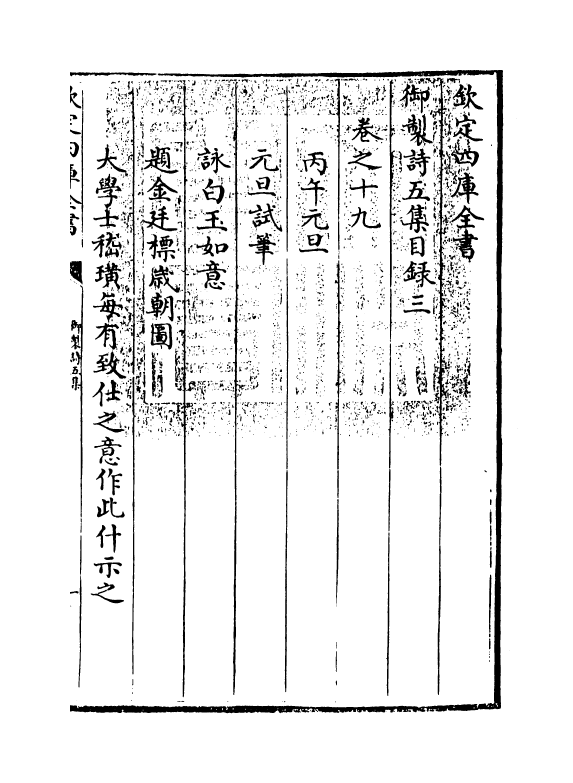 欽定四庫全書
御製詩五集目録三
卷之十九
丙午元旦
元旦試筆
詠白玉如意
題金廷標歲朝圖
大學士嵇璜每有致仕之意作此什示之
欽定四庫全書
御製詩五集
一